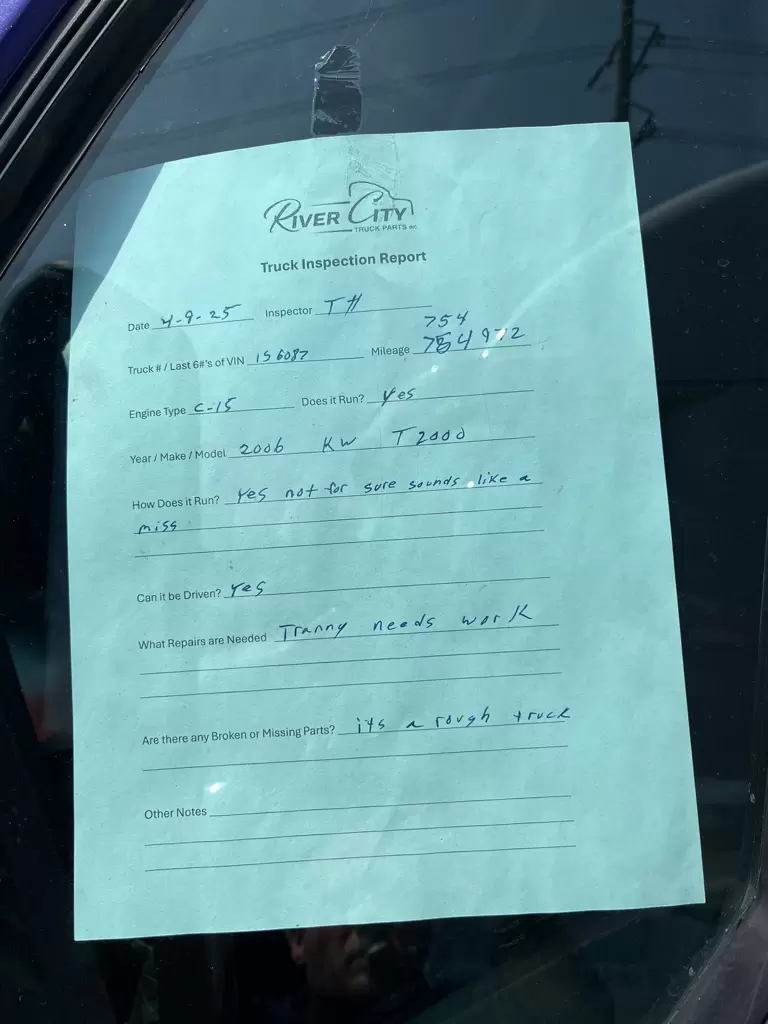 RIVER CITY
TRUCK PARTS INC.
Truck Inspection Report
Date 4-9-25 Inspector TH
754
Truck # / Last 6#'s of VIN 156087 Mileage 754972
Engine Type C-15 Does it Run? Yes
Year / Make / Model 2006 KW T2000
How Does it Run? Yes not for sure sounds like a
miss
Can it be Driven? Yes
What Repairs are Needed Tranny needs work
Are there any Broken or Missing Parts? its a rough truck
Other Notes